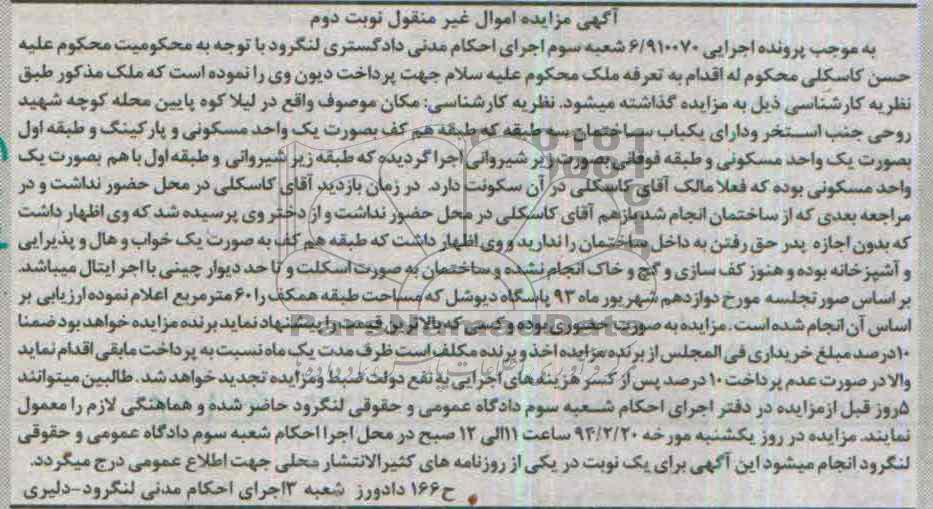 آگهی مزایده اموال غیر منقول نوبت دوم
به موجب پرونده اجرایی ۶/۹۱۰۰۷۰ شعبه سوم اجرای احکام مدنی دادگستری لنگرود با توجه به محکومیت محکوم علیه
حسن کاسکلی محکوم له اقدام به تعرفه ملک محکوم علیه سلام جهت پرداخت دیون وی را نموده است که ملک مذکور طبق
نظریه کارشناسی ذیل به مزایده گذاشته میشود. نظریه کارشناسی: مکان موصوف واقع در لیلا کوه پایین محله کوچه شهید
روحی جنب استخر ودارای یکباب ساختمان سه طبقه که طبقه هم کف بصورت یک واحد مسکونی و پارکینگ و طبقه اول
بصورت یک واحد مسکونی و طبقه فوقانی بصورت زیر شیروانی اجرا گردیده که طبقه زیر شیروانی و طبقه اول با هم بصورت یک
واحد مسکونی بوده که فعلا مالک آقای کاسکلی در آن سکونت دارد. در زمان بازدید آقای کاسکلی در محل حضور نداشت و در
مراجعه بعدی که از ساختمان انجام شد بازهم آقای کاسکلی در محل حضور نداشت و از دختر وی پرسیده شد که وی اظهار داشت
که بدون اجازه پدر حق رفتن به داخل ساختمان را ندارید و وی اظهار داشت که طبقه هم کف به صورت یک خواب و هال و پذیرایی
و آشپزخانه بوده و هنوز کف سازی و گچ و خاک انجام نشده و ساختمان به صورت اسکلت و تا حد دیوار چینی با اجر ایتال میباشد.
بر اساس صور تجلسه مورخ دوازدهم شهریور ماه ۹۳ پاسگاه دیوشل که مساحت طبقه همکف را ۶۰ مترمربع اعلام نموده ارزیابی بر
اساس آن انجام شده است. مزایده به صورت حضوری بوده و کسی که بالاترین قیمت را پیشنهاد نماید برنده مزایده خواهد بود ضمنا
۱۰درصد مبلغ خریداری فی المجلس از برنده مزایده اخذ و برنده مکلف است ظرف مدت یک ماه نسبت به پرداخت مابقی اقدام نماید
والا در صورت عدم پرداخت ۱۰ درصد پس از کسر هزینه های اجرایی به نفع دولت ضبط ومزایده تجدید خواهد شد. طالبین میتوانند
۵روز قبل ازمزایده در دفتر اجرای احکام شعبه سوم دادگاه عمومی و حقوقی لنگرود حاضر شده و هماهنگی لازم را معمول
نمایند. مزایده در روز یکشنبه مورخه ۹۴/۲/۲۰ ساعت ۱۱الی ۱۲ صبح در محل اجرا احکام شعبه سوم دادگاه عمومی و حقوقی
لنگرود انجام میشود این آگهی برای یک نوبت در یکی از روزنامه های کثیرالانتشار محلی جهت اطلاع عمومی درج میگردد.
ح۱۶۶ دادورز شعبه ۳اجرای احکام مدنی لنگرود-دلیری